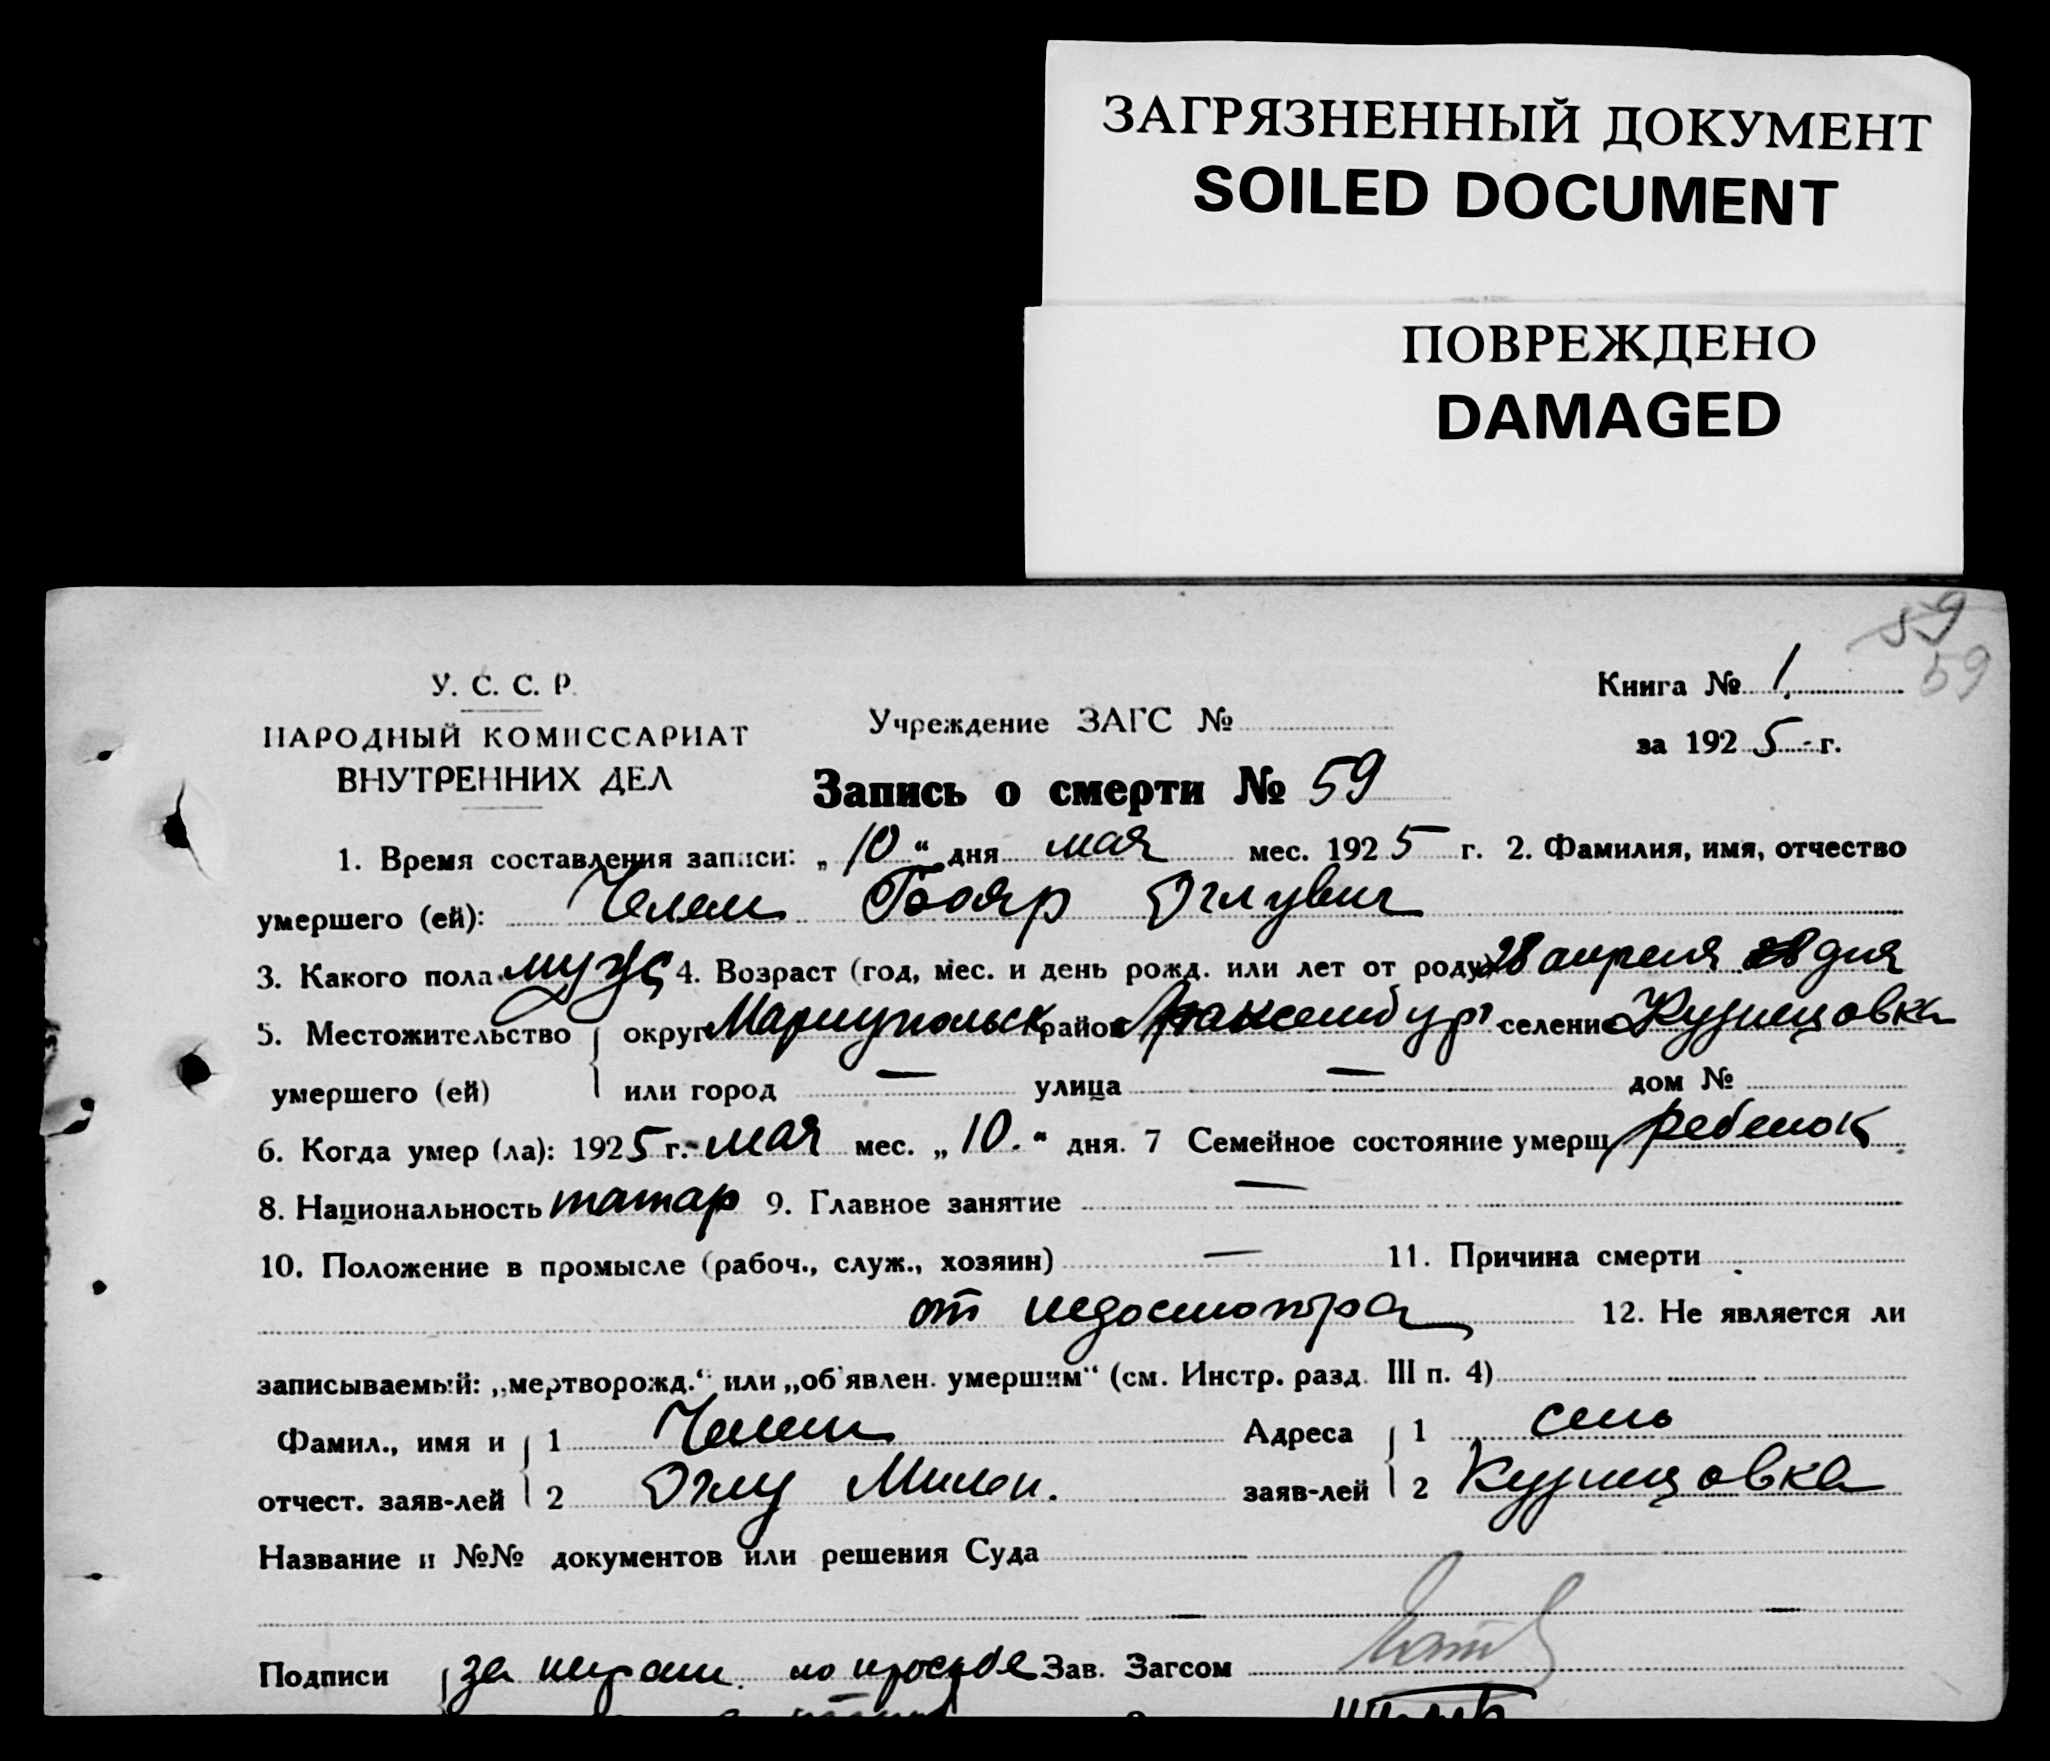 ЗАГРЯЗНЕННЫЙ ДОКУМЕНТ
SOILED DOCUMENT
ПОВРЕЖДЕНО
DAMAGED
59
59
У. С. С. Р.
НАРОДНЫЙ КОМИССАРИАТ
ВНУТРЕННИХ ДЕЛ
Учреждение ЗАГС №
Книга № 1.
за 1925 г.
Запись о смерти № 59
1. Время составления записи: „10“ дня мая мес. 1925 г. 2. Фамилия, имя, отчество
умершего (ей): Челеш Бояр Оглувич
3. Какого пола муж 4. Возраст (год, мес. и день рожд. или лет от роду) 28 апреля дня
5. Местожительство округ Мариупольск район селение Кузнецовка
умершего (ей) или город — улица — дом №
6. Когда умер (ла): 1925 г. мая мес. „10.“ дня. 7 Семейное состояние умерш. ребенок
8. Национальность татар 9. Главное занятие —
10. Положение в промысле (рабоч., служ., хозяин) — 11. Причина смерти
от недосмотра 12. Не является ли
записываемый: „мертворожд.“ или „об'явлен. умершим“ (см. Инстр. разд. III п. 4)
Фамил., имя и 1 Челеш Адреса 1 село
отчест. заяв-лей 2 Оглу Милон. заяв-лей 2 Кузнецовка
Название и №№ документов или решения Суда
Подписи за неграм. по просьбе Зав. Загсом